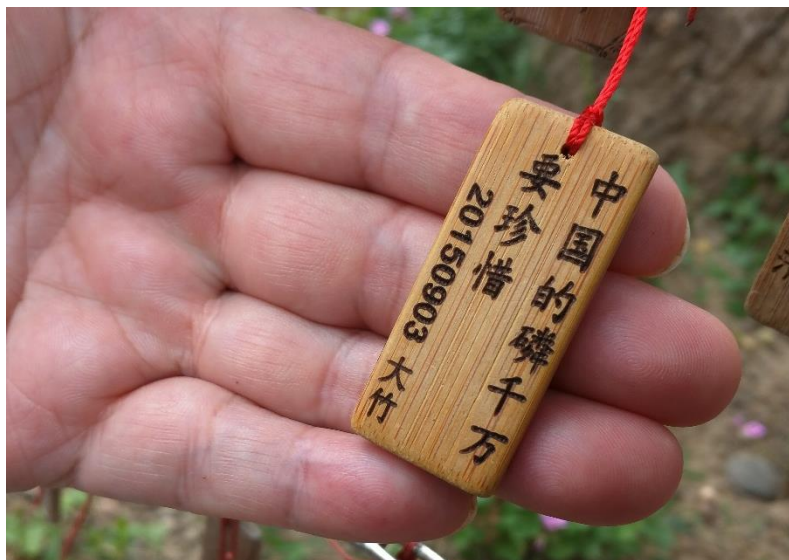 中国的磷千万
要珍惜
20150903 大竹